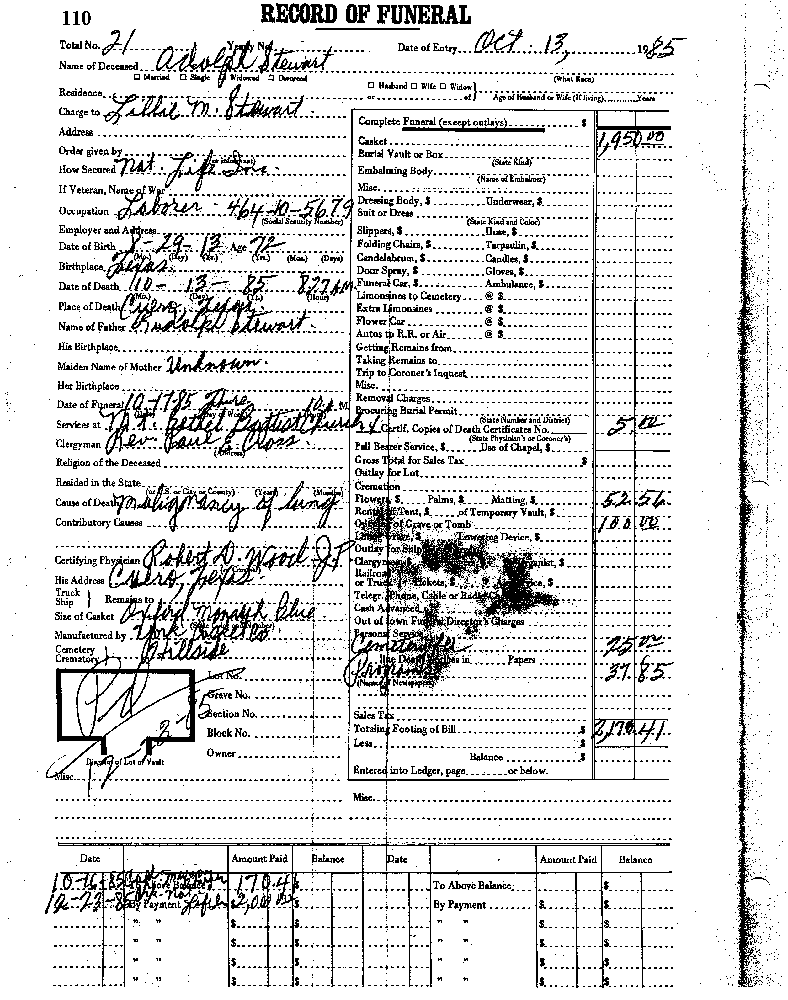 110
RECORD OF FUNERAL
Total No. 21 Yearly No. Date of Entry Oct. 13, 1985
Name of Deceased Adolph Stewart
☐ Married ☐ Single ☐ Widowed ☐ Divorced (What Race)
Residence ☐ Husband ☐ Wife ☐ Widow or of Age of Husband or Wife (If living) Years
Charge to Lillie M. Stewart
Address
Order given by
How Secured Nat. Life Ins.
If Veteran, Name of War
Occupation Laborer - 464-10-5679
(Social Security Number)
Employer and Address
Date of Birth 8-29-13 Age 72
(Mo.) (Day) (Yr.) (Yrs.) (Mos.) (Days)
Birthplace Texas
Date of Death 10-13-85 8:27 A.M.
(Mo.) (Day) (Yr.) (Hour)
Place of Death Cuero, Texas
Name of Father Rudolph Stewart
His Birthplace
Maiden Name of Mother Unknown
Her Birthplace
Date of Funeral 10-17-85 Thurs
Services at Mt. Bethel Baptist Church
Clergyman Rev. Paul E. Cross
(Address)
Religion of the Deceased
Resided in the State
(or U.S. or City or County) (Years) (Months)
Cause of Death Malignancy of lung
Contributory Causes
Certifying Physician Robert D. Wood J.P.
His Address Cuero, Texas
Truck Ship } Remains to
Size of Casket Oxford Monarch Blue
Manufactured by York Casket Co
Cemetery Crematory } Hillside
Pd
12-3-85
Lot No.
Grave No.
Section No.
Block No.
Owner
Diagram of Lot or Vault
Misc.
Complete Funeral (except outlays) $
Casket 1,950.00
Burial Vault or Box
(State Kind)
Embalming Body
(Name of Embalmer)
Misc.
Dressing Body, $ Underwear, $
Suit or Dress
(State Kind and Color)
Slippers, $ Hose, $
Folding Chairs, $ Tarpaulin, $
Candelabrum, $ Candles, $
Door Spray, $ Gloves, $
Funeral Car, $ Ambulance, $
Limousines to Cemetery @ $
Extra Limousines @ $
Flower Car @ $
Autos to R.R. or Air @ $
Getting Remains from
Taking Remains to
Trip to Coroner's Inquest
Misc.
Removal Charges
Procuring Burial Permit
(State Number and District)
Certif. Copies of Death Certificates No. 5.00
(State Physician's or Coroner's)
Pall Bearer Service, $ Use of Chapel, $
Gross Total for Sales Tax $
Outlay for Lot
Cremation
Flowers, $ Palms, $ Matting, $ 52.56
Rental of Tent, $ of Temporary Vault, $
Opening of Grave or Tomb 100.00
Lowering Device, $
Outlay for Ship
Clergyman $
Railroad or Truck Tickets, $
Telegr., Phone, Cable or Radio
Cash Advanced
Out of town Funeral Director's Charges
Personal Service
Cemetery 25.00
line Death Notices in Papers
Programs 37.85
(Names of Newspapers)
Sales Tax
Totaling Footing of Bill $ 2,170.41
Less $
Balance $
Entered into Ledger, page or below.
Misc.
Date Amount Paid Balance Date Amount Paid Balance
10-16-85 To Above Balance 170.41 $ To Above Balance $
By Payment Life $ 2,000.00 $ By Payment $ $
" " $ $ " " $ $
" " $ $ " " $ $
" " $ $ " " $ $
" " $ $ " " $ $